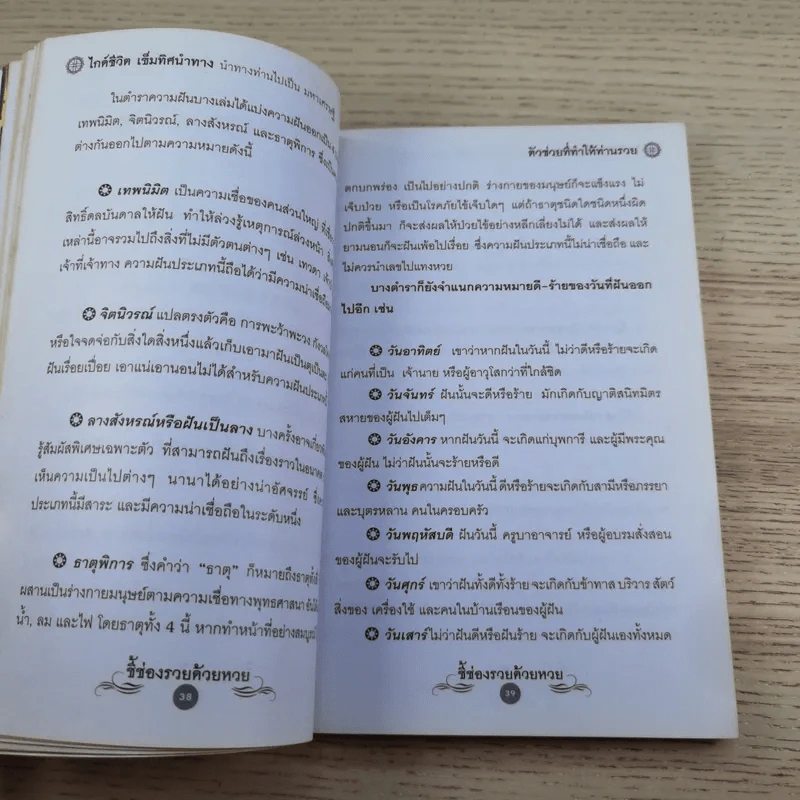 ไกด์ชีวิต เข็มทิศนำทาง นำทางท่านไปเป็น มหาเศรษฐี
ในตำราความฝันบางเล่มได้แบ่งความฝันออกเป็น
เทพนิมิต, จิตนิวรณ์, ลางสังหรณ์ และธาตุพิการ
ต่างกันออกไปตามความหมายดังนี้
เทพนิมิต เป็นความเชื่อของคนส่วนใหญ่
สิทธิ์ดลบันดาลให้ฝัน ทำให้ล่วงรู้เหตุการณ์ล่วงหน้า
เหล่านี้อาจรวมไปถึงสิ่งที่ไม่มีตัวตนต่างๆ เช่น เทวดา
เจ้าที่เจ้าทาง ความฝันประเภทนี้ถือได้ว่ามีความน่าเชื่อถือ
จิตนิวรณ์ แปลตรงตัวคือ การพะว้าพะวง
หรือใจจดจ่อกับสิ่งใดสิ่งหนึ่งแล้วเก็บเอามาฝันเป็นตุเป็นตะ
ฝันเรื่อยเปื่อย เอาแน่เอานอนไม่ได้สำหรับความฝันประเภท
ลางสังหรณ์หรือฝันเป็นลาง บางครั้งอาจ
รู้สัมผัสพิเศษเฉพาะตัว ที่สามารถฝันถึงเรื่องราวในอนาคต
เห็นความเป็นไปต่างๆ นานาได้อย่างน่าอัศจรรย์
ประเภทนี้มีสาระ และมีความน่าเชื่อถือในระดับหนึ่ง
ธาตุพิการ ซึ่งคำว่า “ธาตุ” ก็หมายถึงธาตุทั้ง
ผสานเป็นร่างกายมนุษย์ตามความเชื่อทางพุทธศาสนา
น้ำ, ลม และไฟ โดยธาตุทั้ง 4 นี้ หากทำหน้าที่อย่างสมบูรณ์
ชี้ช่องรวยด้วยหวย
38
ตัวช่วยที่ทำให้ท่านรวย
ตกบกพร่อง เป็นไปอย่างปกติ ร่างกายของมนุษย์ก็จะแข็งแรง ไม่
เจ็บป่วย หรือเป็นโรคภัยไข้เจ็บใดๆ แต่ถ้าธาตุชนิดใดชนิดหนึ่งผิด
ปกติขึ้นมา ก็จะส่งผลให้ป่วยไข้อย่างหลีกเลี่ยงไม่ได้ และส่งผลให้
ยามนอนก็จะฝันเพ้อไปเรื่อย ซึ่งความฝันประเภทนี้ไม่น่าเชื่อถือ และ
ไม่ควรนำเลขไปแทงหวย
บางตำราก็ยังจำแนกความหมายดี-ร้ายของวันที่ฝันออก
ไปอีก เช่น
วันอาทิตย์ เขาว่าหากฝันในวันนี้ ไม่ว่าดีหรือร้ายจะเกิด
แก่คนที่เป็น เจ้านาย หรือผู้อาวุโสกว่าที่ใกล้ชิด
วันจันทร์ ฝันนั้นจะดีหรือร้าย มักเกิดกับญาติสนิทมิตร
สหายของผู้ฝันไปเต็มๆ
วันอังคาร หากฝันวันนี้ จะเกิดแก่บุพการี และผู้มีพระคุณ
ของผู้ฝัน ไม่ว่าฝันนั้นจะร้ายหรือดี
วันพุธ ความฝันในวันนี้ ดีหรือร้ายจะเกิดกับสามีหรือภรรยา
และบุตรหลาน คนในครอบครัว
วันพฤหัสบดี ฝันวันนี้ ครูบาอาจารย์ หรือผู้อบรมสั่งสอน
ของผู้ฝันจะรับไป
วันศุกร์ เขาว่าฝันทั้งดีทั้งร้าย จะเกิดกับข้าทาส บริวาร สัตว์
สิ่งของ เครื่องใช้ และคนในบ้านเรือนของผู้ฝัน
วันเสาร์ ไม่ว่าฝันดีหรือฝันร้าย จะเกิดกับผู้ฝันเองทั้งหมด
ชี้ช่องรวยด้วยหวย
39